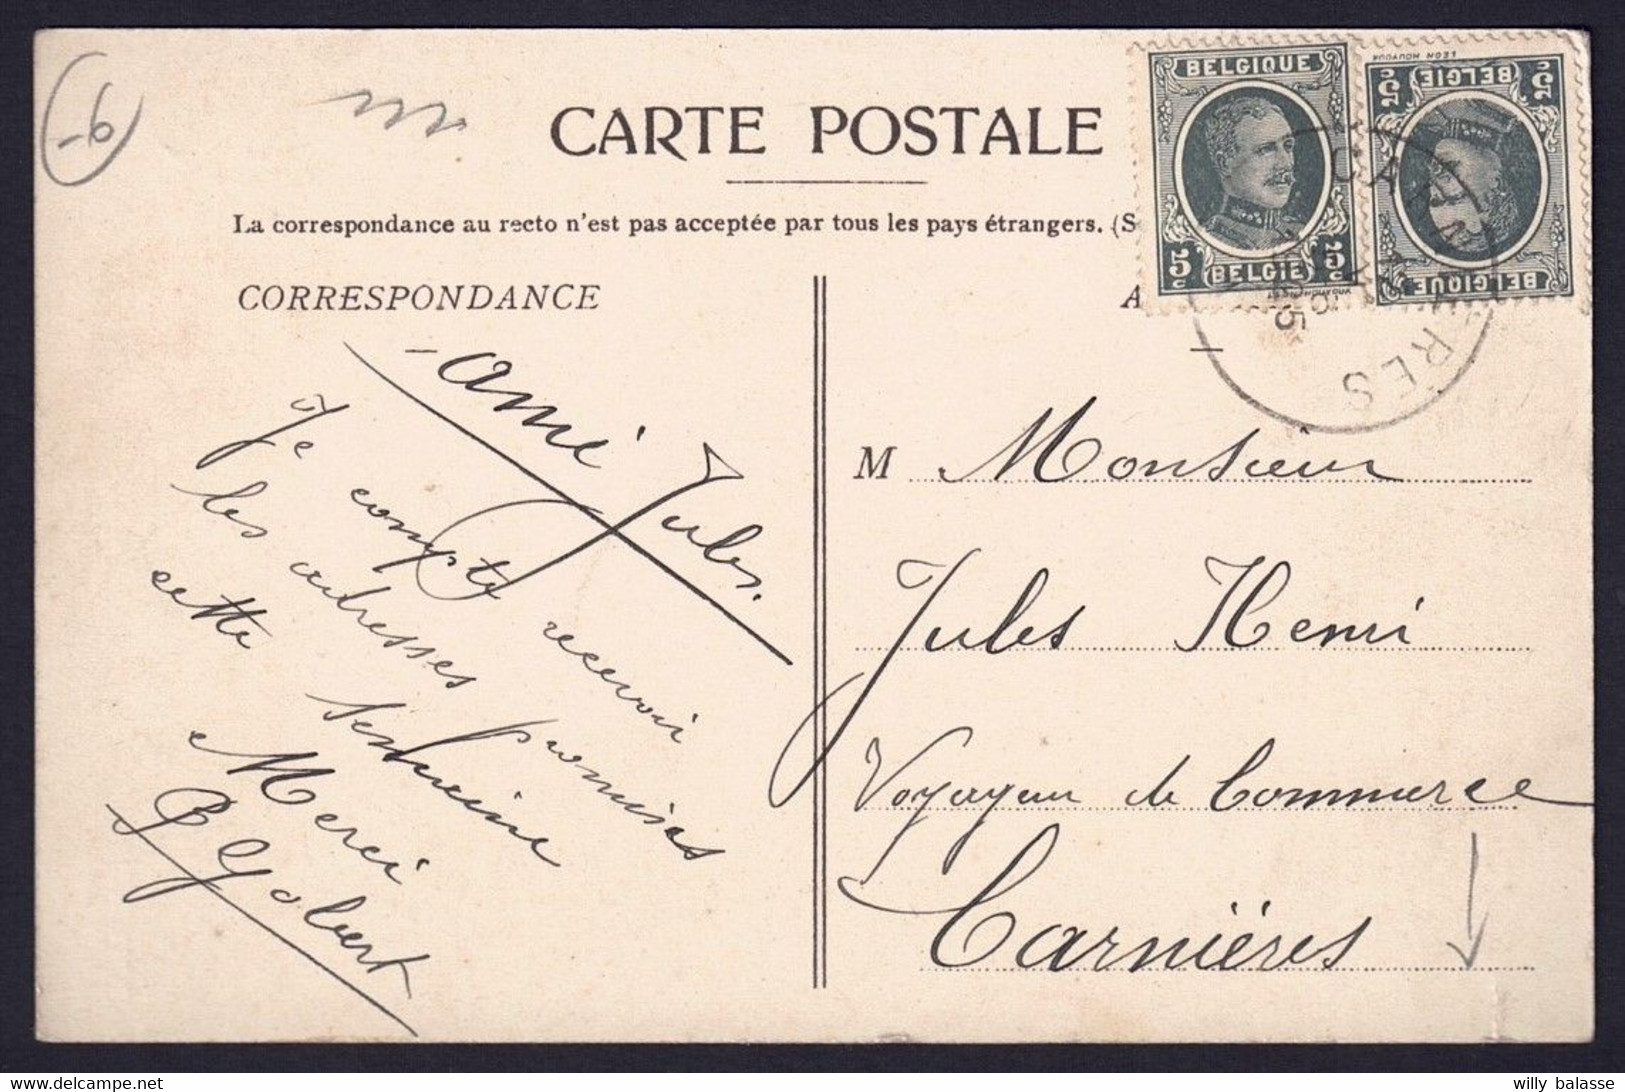 CARTE POSTALE
La correspondance au recto n'est pas acceptée par tous les pays étrangers. (S
CORRESPONDANCE
A
Ami Jules,
Je compte recevoir
les adresses promises
cette semaine
Merci
Gobert
M Monsieur
Jules Henri
Voyageur de Commerce
Carnières
BELGIQUE
5c 5c
BELGIE
BELGIQUE
5c 5c
BELGIE
CARNIERES
9-
willy balasse